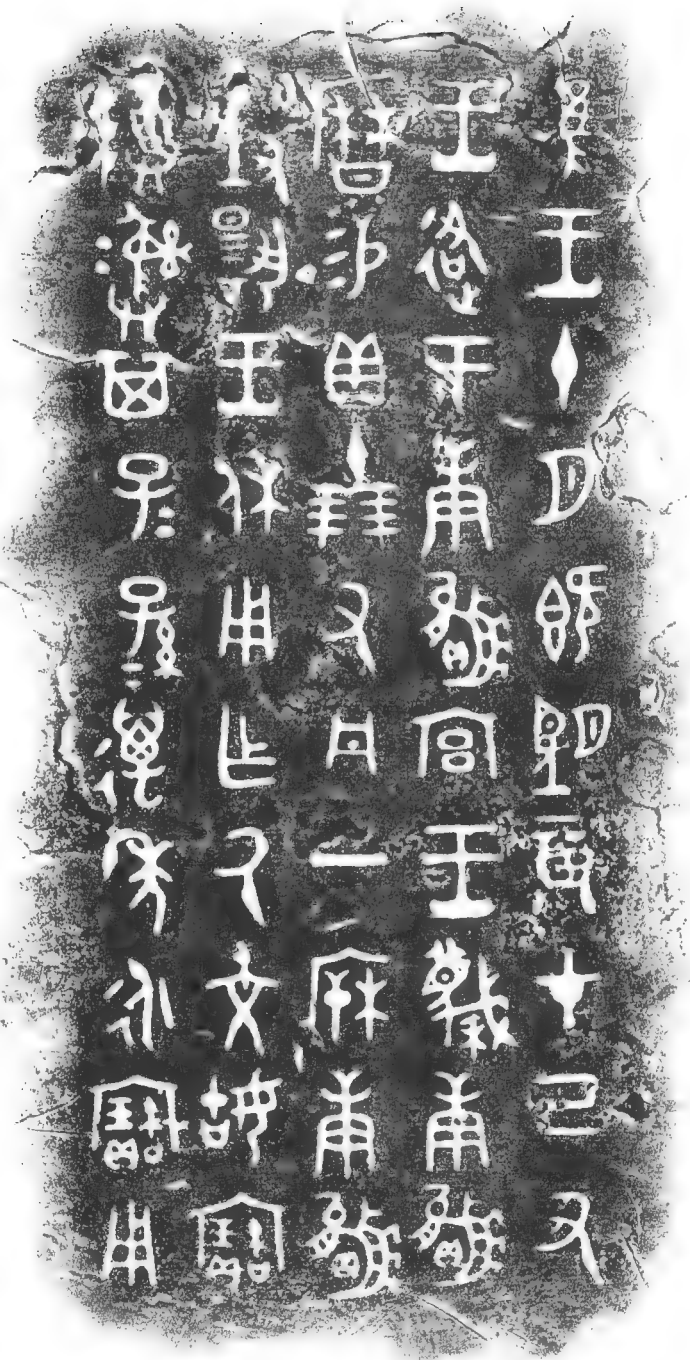 隹王十月既望辰才己丑
王各于庚嬴宮王蔑庚嬴
曆易貝十朋又丹一𣏟庚嬴
對揚王休用乍氒文姑寶
尊彝其子=孫=萬年永寶用